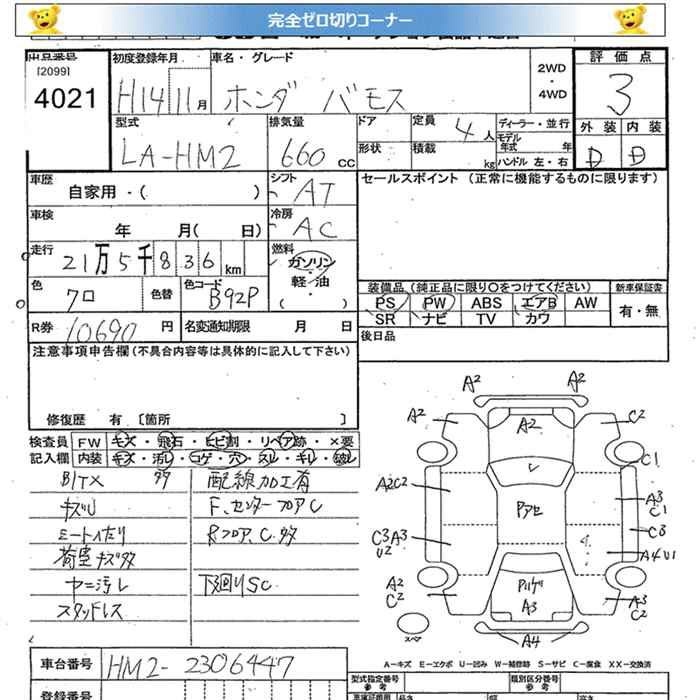 完全ゼロ切りコーナー
出品番号
[2099]
4021
初度登録年月
H14 11月
車名・グレード
ホンダ バモス
2WD
・
4WD
評価点
3
外装 内装
D D
型式
LA-HM2
排気量
660 CC
ドア
形状
定員 4人
積載 kg
ディーラー・並行
モデル年式 年
ハンドル 左・右
車歴
自家用・( )
シフト AT
車検
年 月( 日)
冷房 AC
走行
21万5千836km
燃料
ガソリン
・
軽・油
( )
色
クロ
色替
色コード B92P
R券 10690円
名変通知期限 月 日
セールスポイント (正常に機能するものに限ります)
装備品(純正品に限り○をつけてください)
PS PW ABS エアB AW
SR ナビ TV カワ
新車保証書
有・無
後日品
注意事項申告欄(不具合内容等は具体的に記入して下さい)
修復歴 有 [箇所 ]
検査員記入欄
FW キズ・飛石・ヒビ割・リペア跡・×要
内装 キズ・汚レ・コゲ・穴・スレ・キレ・破レ
キズU
荷室キズ多
ヤニ汚レ
スタッドレス
配線加工有
F、センターフロアC
Rフロア、C多
下回りSC
A2 A2
A2 A2 C2
C1
A2C2 Pアセ A3 C1
C3A3 U2 C3
A4U1
A2 C2 A3 A3 C2
スペア A4
A-キズ E-エクボ U-凹み W-補修跡 S-サビ C-腐食 XX-交換済
車台番号 HM2-2306447
登録番号
型式指定番号 参考
類別区分番号 参考